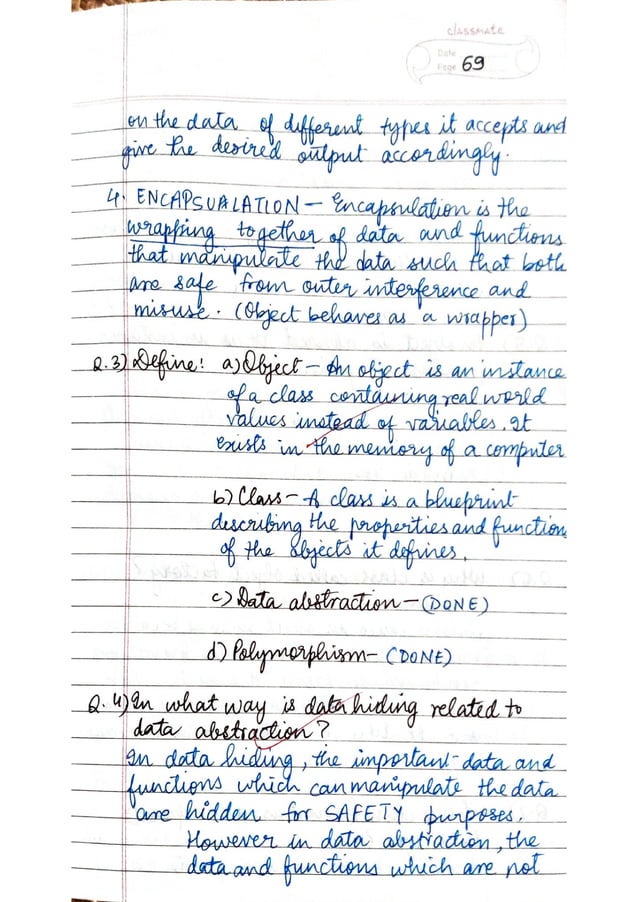 classmate
Date
Page 69
on the data of different types it accepts and
give the desired output accordingly.
4. ENCAPSUALATION – Encapsulation is the
wrapping together of data and functions
that manipulate the data such that both
are safe from outer interference and
misuse. (Object behaves as a wrapper)
Q.3) Define: a) Object – An object is an instance
of a class containing real world
values instead of variables. It
exists in the memory of a computer
b) Class – A class is a blueprint
describing the properties and function
of the objects it defines.
c) Data abstraction – (DONE)
d) Polymorphism – (DONE)
Q.4) In what way is data hiding related to
data abstraction?
In data hiding, the important data and
functions which can manipulate the data
are hidden for SAFETY purposes.
However in data abstraction, the
data and functions which are not